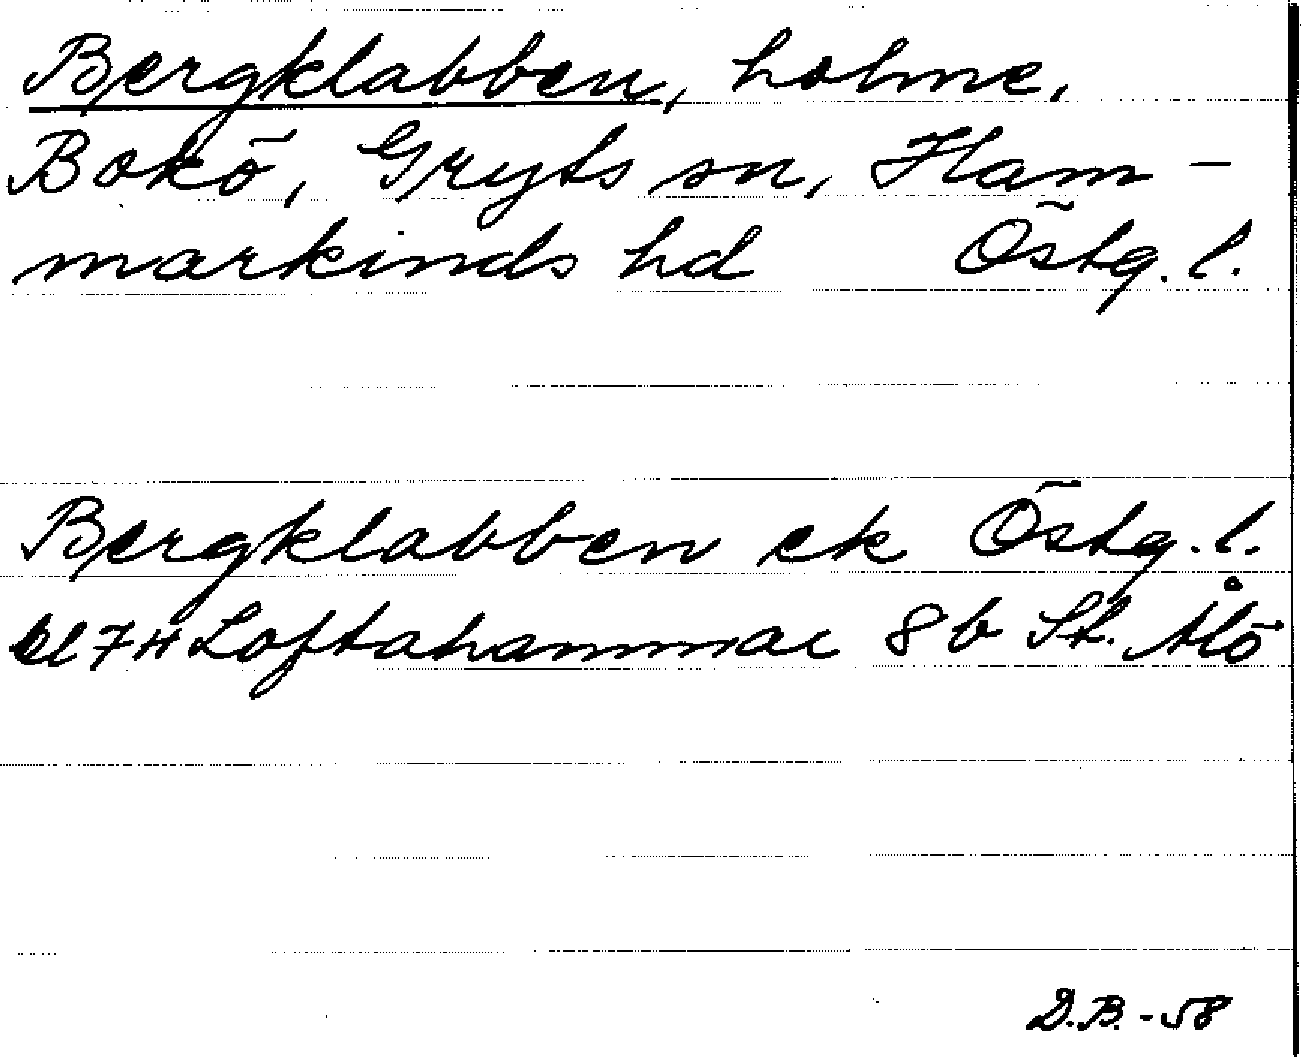 Bergklabben, holme,
Bokö, Gryts sn, Ham-
markinds hd Östg. l.
Bergklabben ek Östg. l.
bl 7H Loftahammar 8b St. Ålö
D.B. - 58